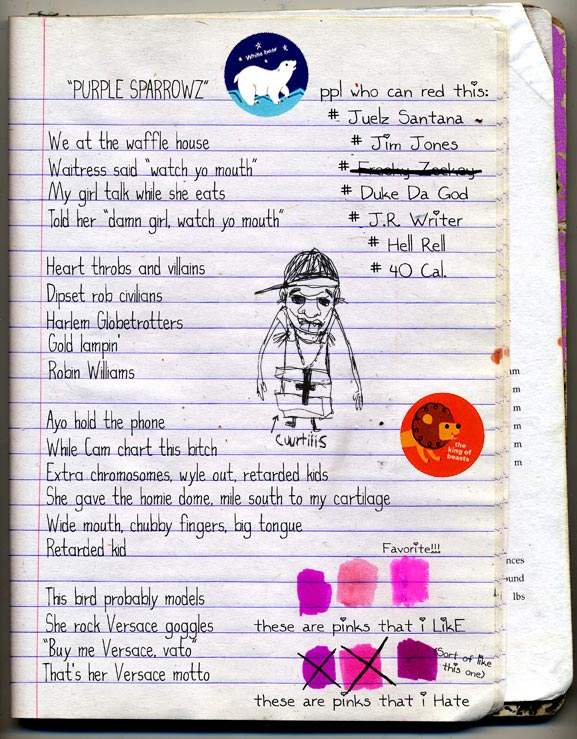 White bear
"PURPLE SPARROWZ"
ppl who can red this:
# Juelz Santana
# Jim Jones
#
# Duke Da God
# J.R. Writer
# Hell Rell
# 40 Cal.
We at the waffle house
Waitress said "watch yo mouth"
My girl talk while she eats
Told her "damn girl, watch yo mouth"
Heart throbs and villains
Dipset rob civilians
Harlem Globetrotters
Gold lampin'
Robin Williams
CuurtiliS
the king of beasts
Ayo hold the phone
While Cam chart this bitch
Extra chromosomes, wyle out, retarded kids
She gave the homie dome, mile south to my cartilage
Wide mouth, chubby fingers, big tongue
Retarded kid
Favorite!!!
This bird probably models
She rock Versace goggles
"Buy me Versace, vato"
That's her Versace motto
these are pinks that i LikE
(Sort of like
this one)
these are pinks that i Hate
am
m
m
m
m
nces
ound
lbs